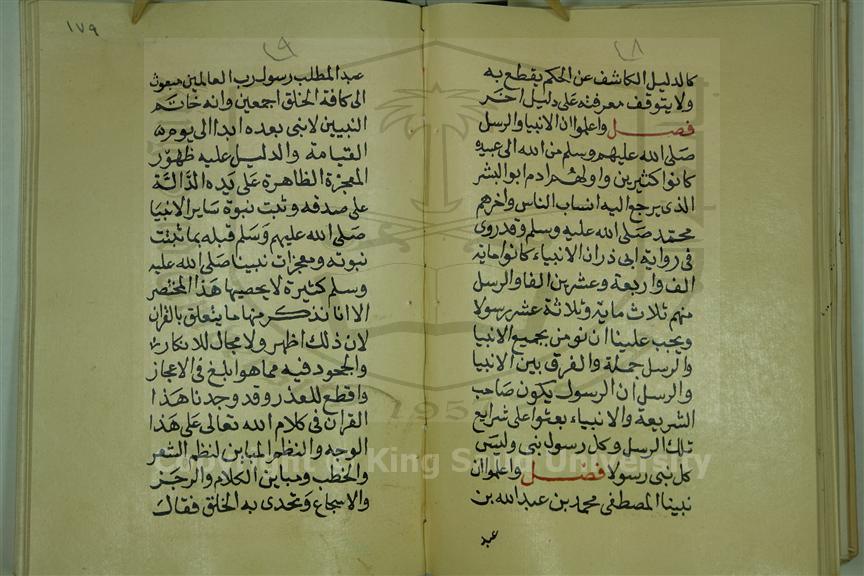 ٢٨
كالدليل الكاشف عن الحكم يقطع به
ولا يتوقف معرفته على دليل اخر
فصل واعلموا ان الانبيا والرسل
صلى الله عليهم وسلم من الله الى عبيده
كانوا كثيرين واولهم ادم ابو البشر
الذي يرجع اليه انساب الناس واخرهم
محمد صلى الله عليه وسلم وقد روى
فى رواية ابى ذر ان الانبياء كانوا ماية
الف واربعة وعشرين الفا والرسل
منهم ثلاث ماية وثلاثة عشر رسولا
ويجب علينا ان نومن بجميع الانبيا
والرسل جملة والفرق بين الانبيا
والرسل ان الرسول يكون صاحب
الشريعة والانبياء بعثوا على شرايع
تلك الرسل وكل رسول نبى وليس
كل نبى رسولا فصل واعلموا ان
نبينا المصطفى محمد بن عبد الله بن
عبد
١٧٩
٢٩
عبد المطلب رسول رب العالمين مبعوث
الى كافة الخلق اجمعين وانه خاتم
النبيين لا نبى بعده ابدا الى يوم
القيامة والدليل عليه ظهور
المعجزة الظاهرة على يده الدالة
على صدقه وثبت نبوة ساير الانبيا
صلى الله عليهم وسلم قبله بما ثبتت
نبوته ومعجزات نبينا صلى الله عليه
وسلم كثيرة لا يحصيها هذا المختصر
الا انا نذكر منها ما يتعلق بالقران
لان ذلك اظهر ولا مجال للانكار
والجحود فيه مما هو ابلغ فى الاعجاز
واقطع للعذر وقد وجدنا هذا
القران فى كلام الله تعالى على هذا
الوجه والنظم المباين لنظم الشعر
والخطب ومباين الكلام والرجز
والاسجاع وتحدى به الخلق فقال
Copyright © King Saud University
195